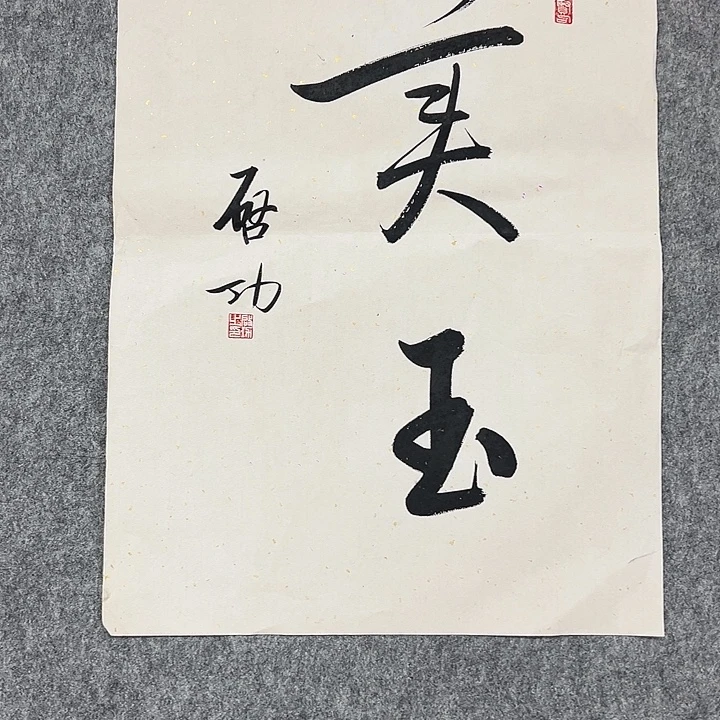 美玉
启功